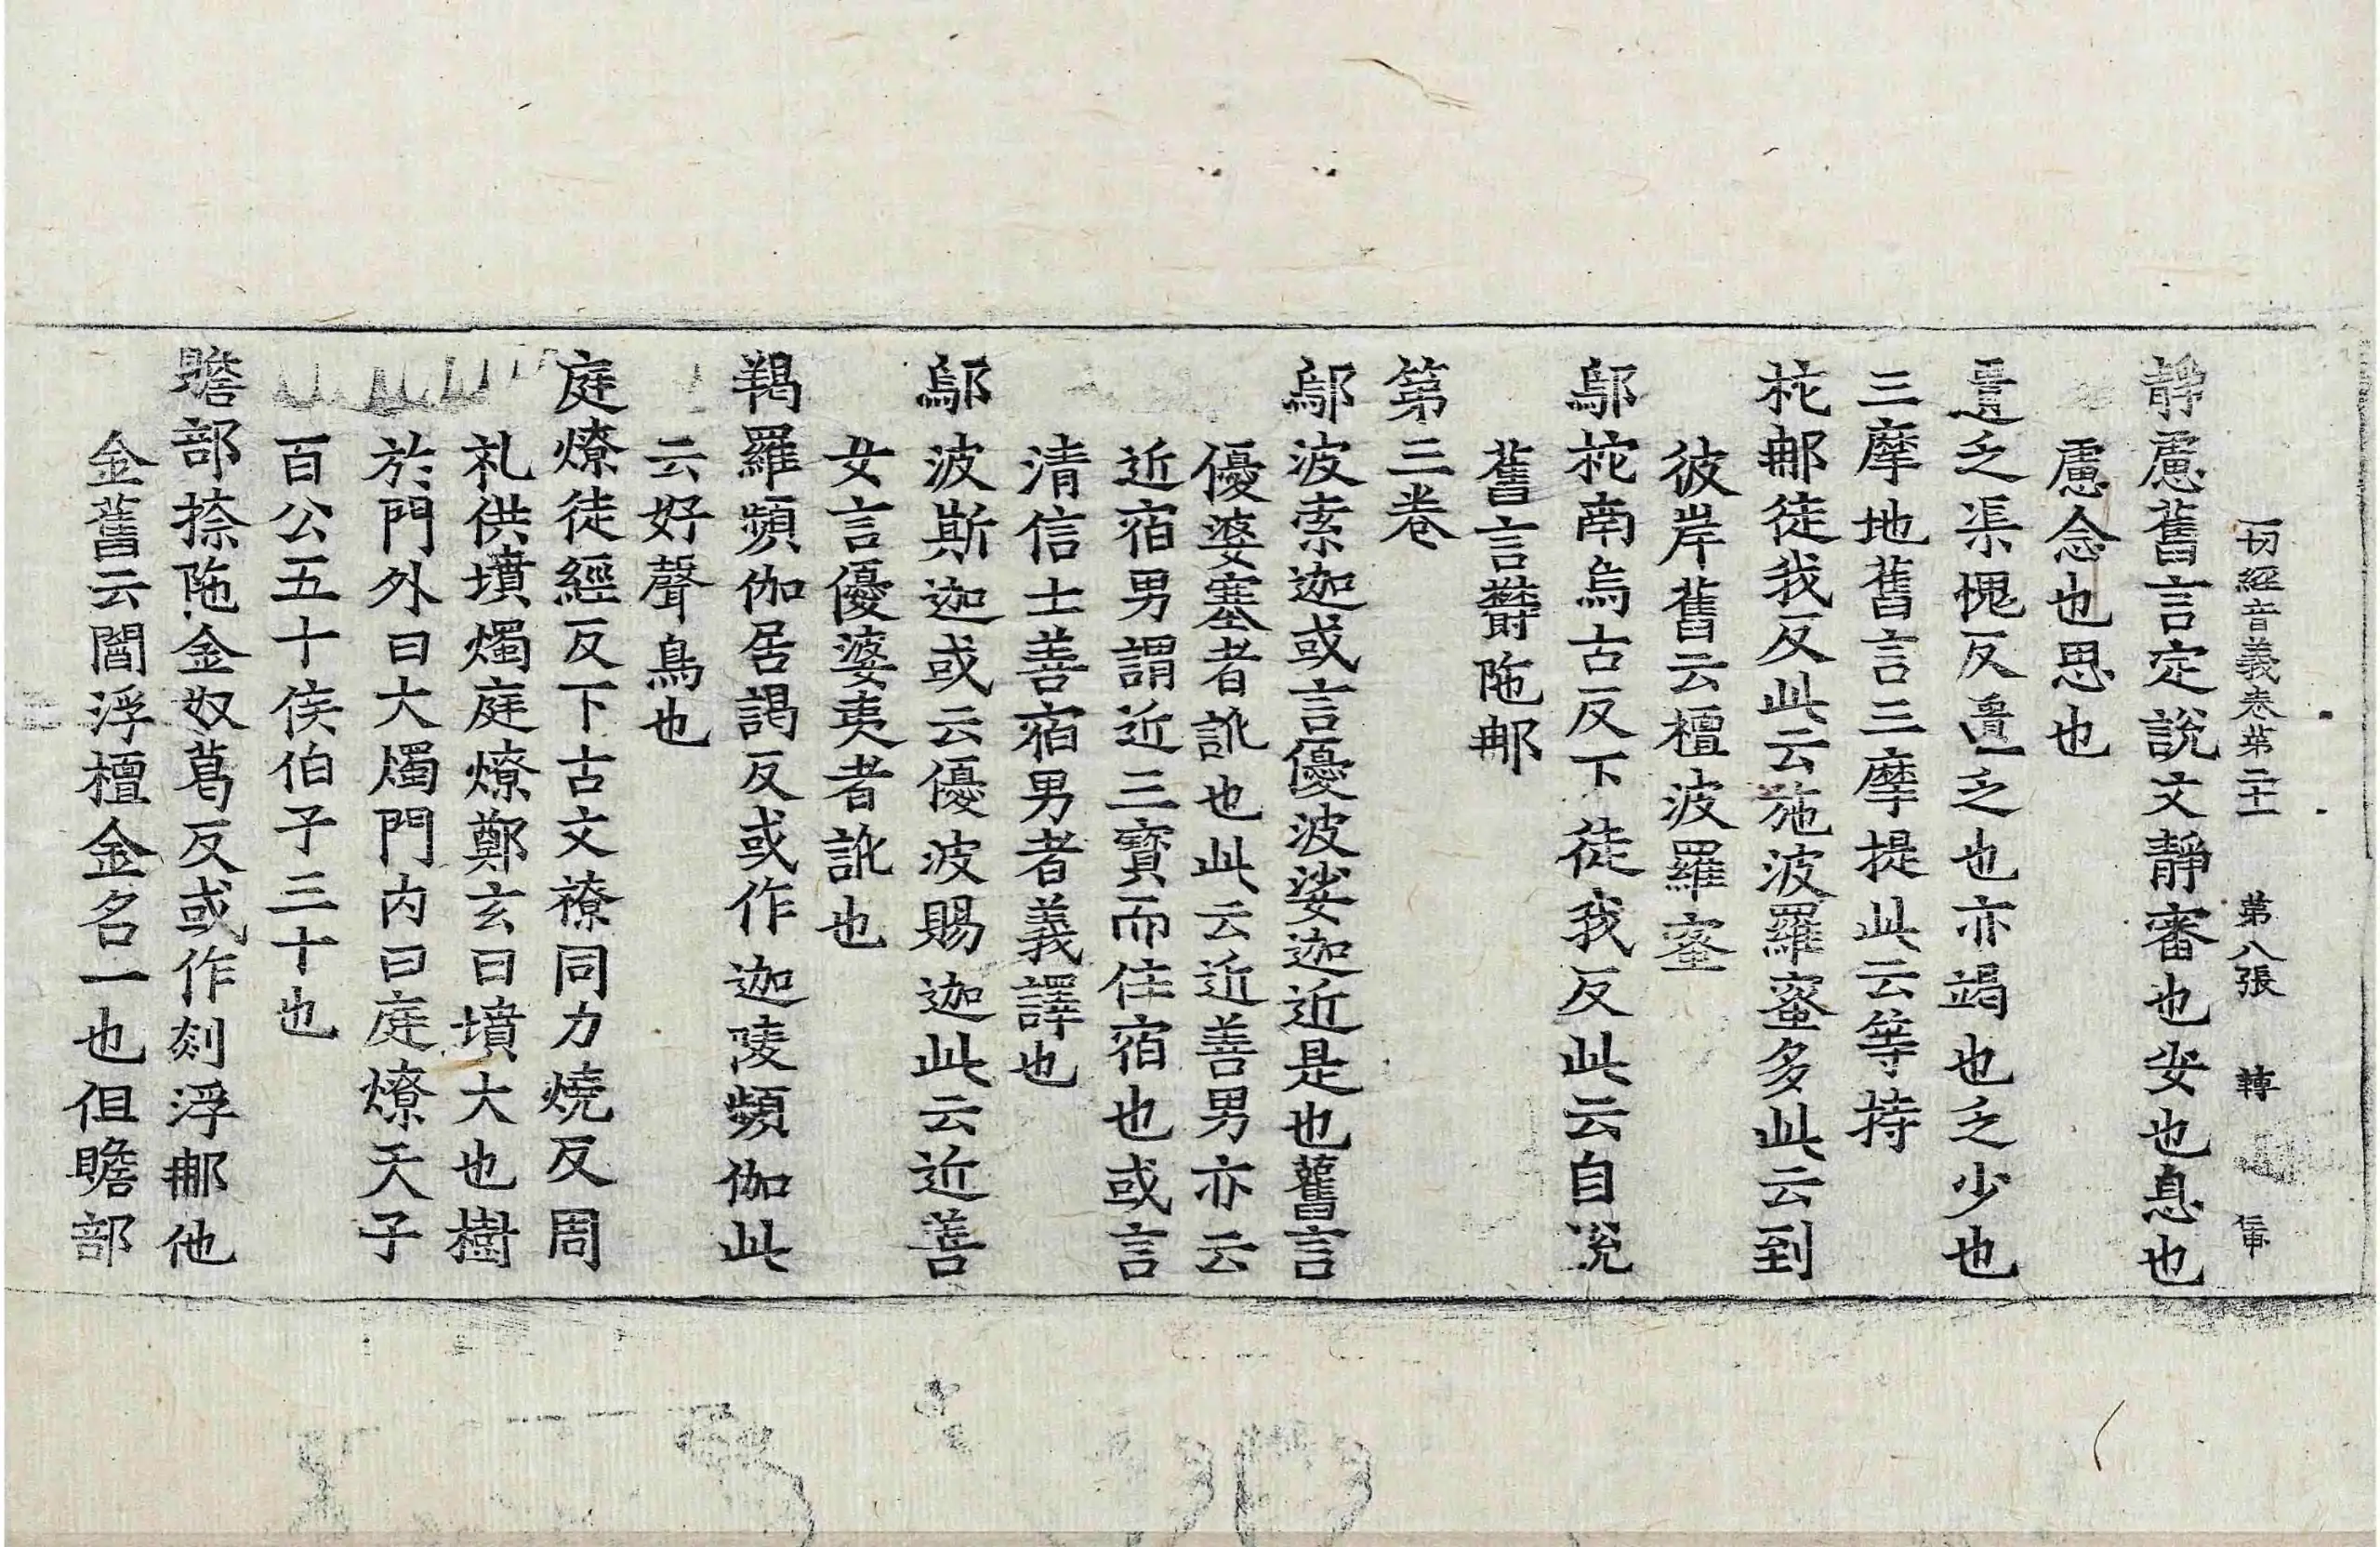 一切經音義卷第二十一 第八張 轉
靜慮舊言定說文靜審也安也息也
慮念也思也
匱乏渠愧反匱乏也亦竭也乏少也
三摩地舊言三摩提此云等持
柁那徒我反此云施波羅蜜多此云到
彼岸舊云檀波羅蜜
鄔柁南烏古反下徒我反此云自說
舊言欝陁那
第三卷
鄔波索迦或言優波娑迦近是也舊言
優婆塞者訛也此云近善男亦云
近宿男謂近三寶而住宿也或言
清信士善宿男者義譯也
鄔波斯迦或云優波賜迦此云近善
女言優婆夷者訛也
羯羅頻伽居謁反或作迦陵頻伽此
云好聲鳥也
庭燎徒經反下古文𥛰同力燒反周
礼供墳燭庭燎鄭玄曰墳大也樹
於門外曰大燭門內曰庭燎天子
百公五十侯伯子三十也
贍部捺陁金奴葛反或作剡浮那他
金舊云閻浮檀金金名一也但贍部